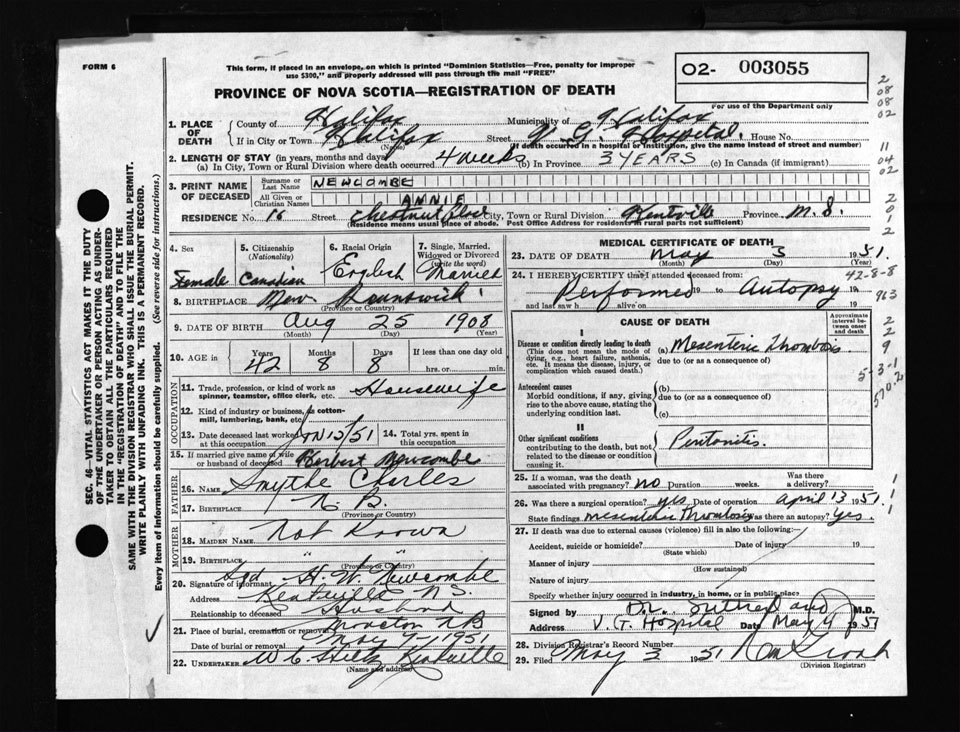 FORM 6
This form, if placed in an envelope, on which is printed "Dominion Statistics—Free, penalty for improper
use $300," and properly addressed will pass through the mail "FREE"
PROVINCE OF NOVA SCOTIA—REGISTRATION OF DEATH
02- 003055
For use of the Department only
2
08
08
02
11
04
02
1. PLACE OF DEATH
County of Halifax Municipality of Halifax
If in City or Town Halifax Street V. G. Hospital. House No.
(Name) (If death occurred in a hospital or institution, give the name instead of street and number)
2. LENGTH OF STAY (in years, months and days)
(a) In City, Town or Rural Division where death occurred 4 weeks (b) In Province 3 YEARS (c) In Canada (if immigrant)
3. PRINT NAME OF DECEASED
Surname or Last Name NEWCOMBE
All Given or Christian Names ANNIE
RESIDENCE No. 16 Street Chestnut City, Town or Rural Division Kentville Province N.S.
(Residence means usual place of abode. Post Office Address for residence in rural parts not sufficient)
4. Sex Female
5. Citizenship (Nationality) Canadian
6. Racial Origin English
7. Single, Married, Widowed or Divorced (write the word) Married
8. BIRTHPLACE New Brunswick
(Province or Country)
9. DATE OF BIRTH Aug 25 1908
(Month) (Day) (Year)
10. AGE in Years Months Days If less than one day old
42 8 8 hrs. or min.
OCCUPATION
11. Trade, profession, or kind of work as spinner, teamster, office clerk, etc. Housewife
12. Kind of industry or business, as cotton-mill, lumbering, bank, etc.
13. Date deceased last worked at this occupation JAN 15/51 14. Total yrs. spent in this occupation
15. If married give name of wife or husband of deceased Herbert Newcombe
FATHER
16. Name Smythe Charles
17. Birthplace N B
(Province or Country)
MOTHER
18. MAIDEN NAME Not Known
19. BIRTHPLACE " "
(Province or Country)
20. Signature of informant Sgd H. W. Newcombe
Address Kentville N.S.
Relationship to deceased Husband
21. Place of burial, cremation or removal Moncton NB
Date of burial or removal May 7-1951
22. UNDERTAKER W C Hiltz Kentville
(Name and address)
MEDICAL CERTIFICATE OF DEATH
23. DATE OF DEATH May 3 1951.
(Month) (Day) (Year)
24. I HEREBY CERTIFY that I attended deceased from:
Performed 19 to Autopsy 19
and last saw h alive on 19
42-8-8
963
CAUSE OF DEATH
Approximate interval between onset and death
I
Disease or condition directly leading to death
(This does not mean the mode of dying, e.g., heart failure, asthenia, etc. It means the disease, injury, or complication which caused death.)
(a) Mesenteric Thombosis.
due to (or as a consequence of)
Antecedent causes
Morbid conditions, if any, giving rise to the above cause, stating the underlying condition last.
(b)
due to (or as a consequence of)
(c)
II
Other significant conditions
contributing to the death, but not related to the disease or condition causing it.
Peritonitis.
5-3-1
570.2
25. If a woman, was the death associated with pregnancy? no Duration weeks. Was there a delivery?
26. Was there a surgical operation? yes Date of operation April 13 1951
State findings mesenteric thrombosis Was there an autopsy? Yes.
27. If death was due to external causes (violence) fill in also the following:
Accident, suicide or homicide? Date of injury 19
(State which)
Manner of injury
(How sustained)
Nature of injury
Specify whether injury occurred in industry, in home, or in public place
Signed by Dr. Sutherland M.D.
Address V. G. Hospital Date May 4 1951
28. Division Registrar's Record Number
29. Filed May 3 1951
(Division Registrar)
SEC. 46 VITAL STATISTICS ACT MAKES IT THE DUTY
OF THE UNDERTAKER OR PERSON ACTING AS UNDER-
TAKER TO OBTAIN ALL THE PARTICULARS REQUIRED
IN THE "REGISTRATION OF DEATH" AND TO FILE THE
SAME WITH THE DIVISION REGISTRAR WHO SHALL ISSUE THE BURIAL PERMIT.
WRITE PLAINLY WITH UNFADING INK. THIS IS A PERMANENT RECORD.
Every item of information should be carefully supplied. (See reverse side for instructions.)